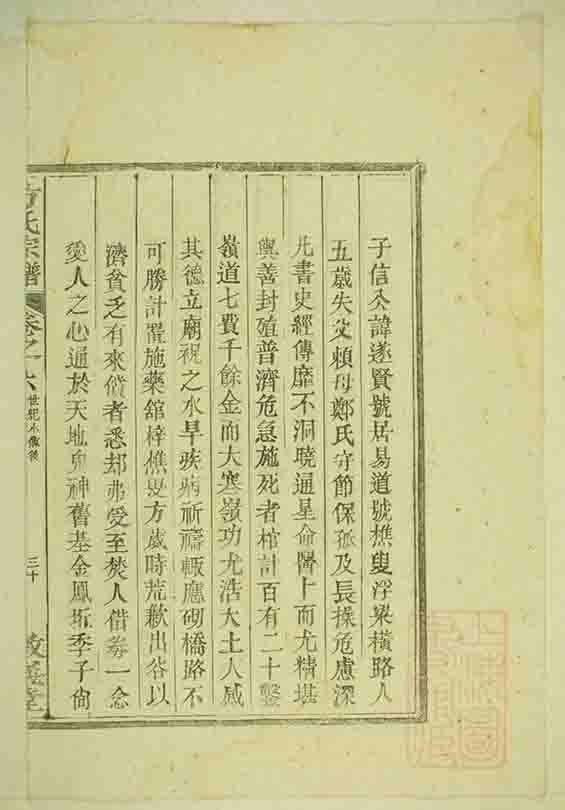 子信公諱遂賢號居易道號樵叟浮梁橫路人
五歲失父賴母鄭氏守節保孤及長操危慮深
凡書史經傳靡不洞曉通星命醫卜而尤精堪
輿善封殖普濟危急施死者棺計百有二十鑿
嶺道七費千餘金而大寒嶺功尤浩大土人感
其德立廟祝之水旱疾病祈禱輒應砌橋路不
可勝計置施藥舘梓樵叟方歲時荒歉出谷以
濟貧乏有來償者悉却弗受至焚人借券一念
愛人之心通於天地鬼神舊基金鳳坵季子尙
氏宗譜
卷之十六
世紀小傳後
三十
上海圖